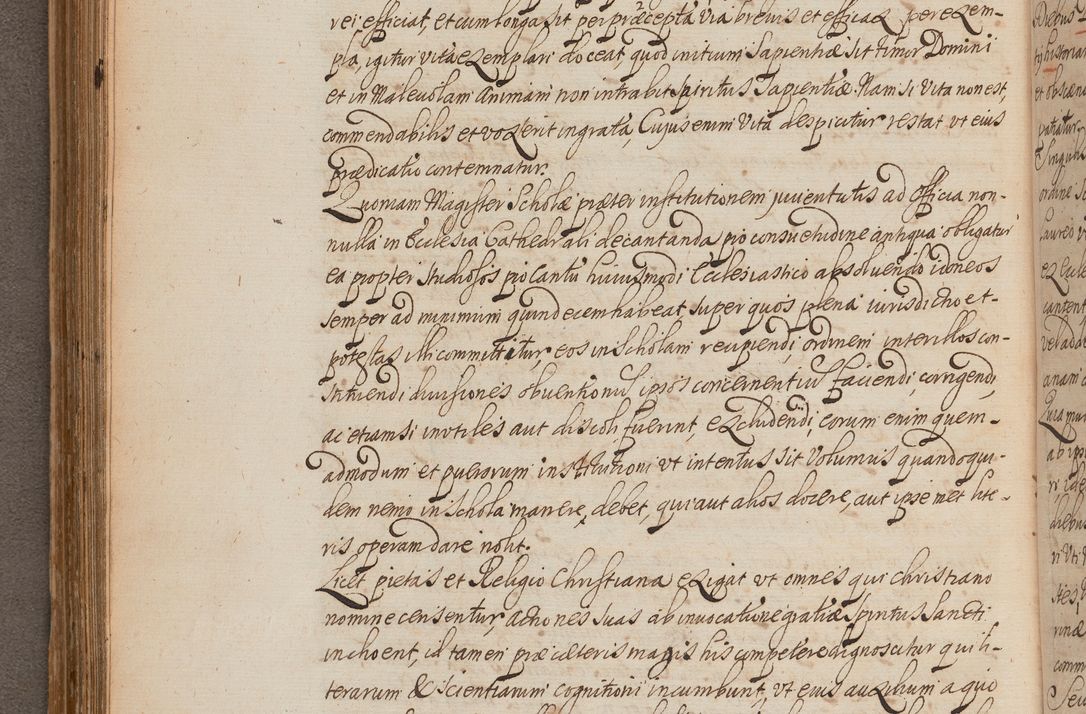 rei efficiat, et cum longa sit per præcepta via brevis et efficax per exem-
pla, igitur vitæ exemplari doceat quod initium sapientiæ sit timor Domini
et in Malevolam Animam non intrabit spiritus Sapientiæ. Nam si vita non est,
commendabilis et vox erit ingrata, Cujus enim vita despicitur restat ut eius
prædicatio contemnatur.
Quoniam Magister Scholæ præter institutionem juventutis ad officia non-
nulla in Ecclesia Cathedrali decantanda pro consuetudine antiqua obligatur
ea propter studiosos pro Cantu huiusmodi Ecclesiastico absolvendo idoneos
semper ad minimum quindecem habeat super quos plena iurisdictio et-
potestas illi committitur, eos in scholam recipiendi, ordinem inter illos con-
stituendi divisiones obventionum ipsos concernentium faciendi, corrigendi,
ac etiam si inutiles aut discoli fuerint, excludendi, eorum enim quem-
admodum et puerorum institutioni ut intentus sit volumus quandoqui-
dem nemo in schola manere, debet, qui aut alios docere, aut ipsemet lite-
ris operam dare nolit.
Licet pietas et Religio Christiana exigat ut omnes qui christiano
nomine censentur, actiones suas ab invocatione gratiæ Spiritus Sancti
inchoent, id tamen præ cæteris magis his competere dignoscitur qui li-
terarum & scientiarum cognitioni incumbunt, ut eius auxilium a quo